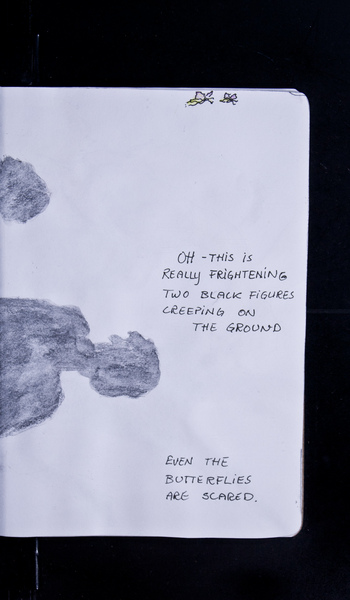 OH - THIS IS
REALLY FRIGHTENING
TWO BLACK FIGURES
CREEPING ON
THE GROUND
EVEN THE
BUTTERFLIES
ARE SCARED.